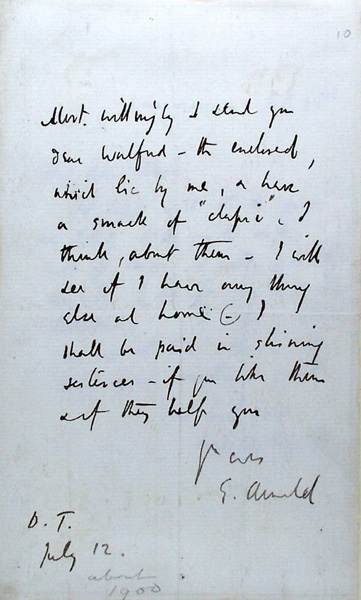 10
Most willingly I send you
dear Walford - the enclosed,
which lie by me, & have
a smack of "classic", I
think, about them - I will
see if I have any thing
else at home - I
shall be paid in shining
sentences - if you like them
& if they help you
Yours
E. Arnold
D. T.
July 12.
about
1900